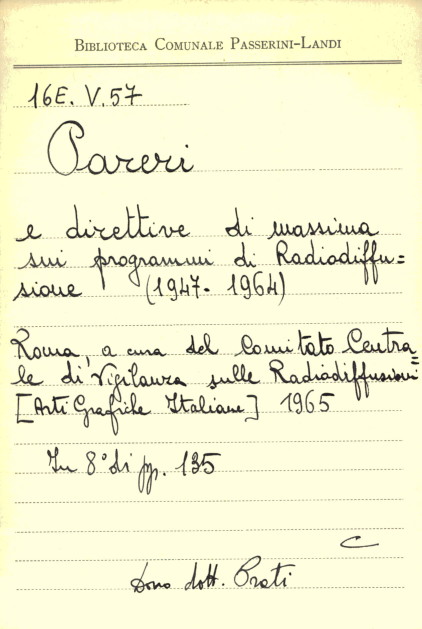 BIBLIOTECA COMUNALE PASSERINI-LANDI
16E. V. 57
Pareri
e direttive di massima
sui programmi di Radiodiffu=
sione (1947- 1964)
Roma, a cura del Comitato Centra=
le di Vigilanza sulle Radiodiffusioni
[Arti Grafiche Italiane] 1965
In 8° di pp. 135
C
Dono dott. Prati